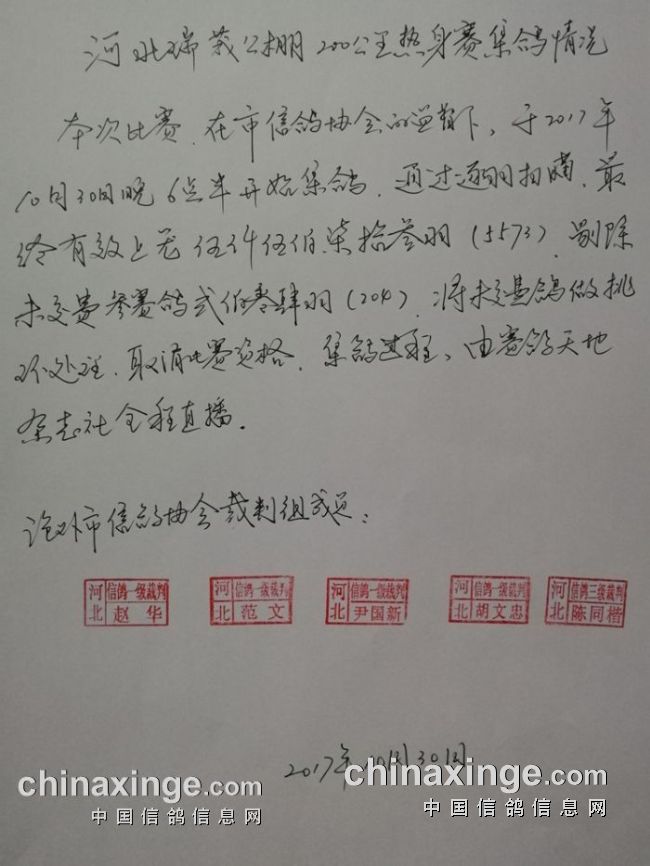 河北瑞茂公棚200公里热身赛集鸽情况
本次比赛.在市信鸽协会的监督下,于2017年
10月30日晚6点半开始集鸽.通过逐羽扫瞄.最
终有效上笼伍仟伍佰柒拾叁羽(5573).剔除
未交费参赛鸽弍佰零肆羽(204).将未交费鸽做挑
环处理.取消比赛资格.集鸽过程、由赛鸽天地
杂志社全程直播.
市信鸽协会裁判组成员:
河北 信鸽一级裁判 赵华
河北 信鸽一级裁判 范文
河北 信鸽一级裁判 尹国新
河北 信鸽一级裁判 胡文忠
河北 信鸽三级裁判 陈同楷
2017年10月30日
chinaxinge.com
中国信鸽信息网
chinaxinge.com
中国信鸽信息网